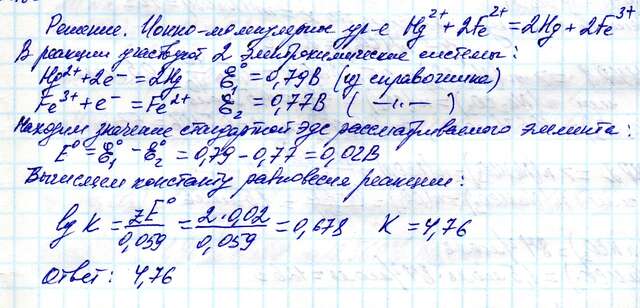 Решение. Ионно-молекулярное ур-е Hg²⁺ + 2Fe²⁺ = 2Hg + 2Fe³⁺
В реакции участвуют 2 электрохимические системы:
Hg²⁺ + 2e⁻ = 2Hg ℰ₁° = 0,79В (из справочника)
Fe³⁺ + e⁻ = Fe²⁺ ℰ₂° = 0,77В ( —"— )
Находим значение стандартной эдс рассматриваемого элемента:
E° = ℰ₁° - ℰ₂° = 0,79 - 0,77 = 0,02В
Вычислим константу равновесия реакции:
lg K = zE°/0,059 = 2·0,02/0,059 = 0,678 K = 4,76
Ответ: 4,76